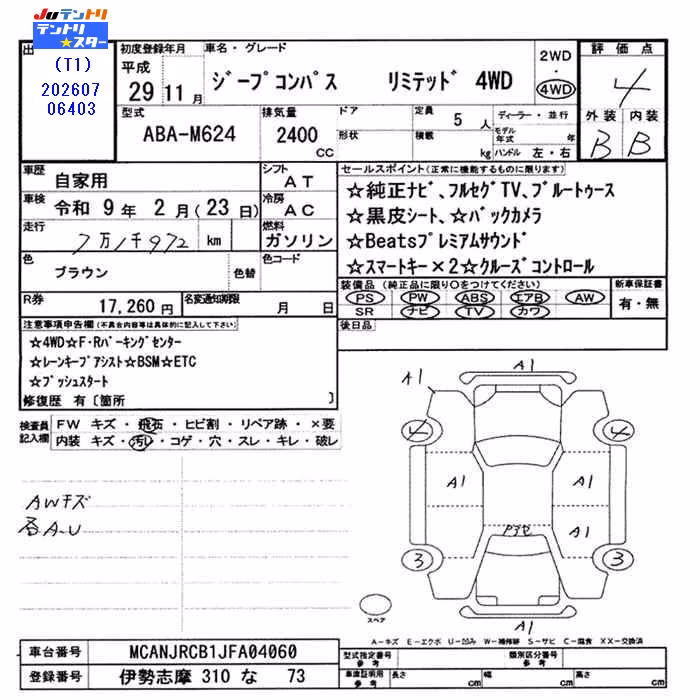 JUテントリ
テントリ
★スター
(T1)
202607
06403
出
初度登録年月
車名・グレード
平成
29 11 月
ジープコンパス リミテッド 4WD
2WD
・
4WD
評価点
4
外装 内装
B B
型式
ABA-M624
排気量
2400
CC
ドア
形状
定員
5 人
積載
kg
ディーラー・並行
モデル年式 年
ハンドル 左・右
車歴
自家用
シフト
AT
車検
令和 9 年 2 月(23 日)
冷房
AC
走行
7万1千972 km
燃料
ガソリン
色
ブラウン
色替
色コード
R券
17,260 円
名変通知期限
月 日
セールスポイント(正常に機能するものに限ります)
☆純正ナビ、フルセグTV、ブルートゥース
☆黒皮シート、☆バックカメラ
☆Beatsプレミアムサウンド
☆スマートキー×2☆クルーズコントロール
装備品(純正品に限り○をつけてください)
PS PW ABS エアB AW
SR ナビ TV カワ
新車保証書
有・無
後日品
注意事項申告欄(不具合内容等は具体的に記入して下さい)
☆4WD☆F・Rパーキングセンター
☆レーンキープアシスト☆BSM☆ETC
☆プッシュスタート
修復歴 有〔箇所 〕
検査員
記入欄
FW キズ・飛石・ヒビ割・リペア跡・×要
内装 キズ・汚レ・コゲ・穴・スレ・キレ・破レ
AWキズ
各A-U
A1
A1
4
4
A1
A1
A1
3
3
A1
スペア
A-キズ E-エクボ U-凹み W-補修跡 S-サビ C-腐食 XX-交換済
車台番号
MCANJRCB1JFA04060
登録番号
伊勢志摩 310 な 73
型式指定番号
参考
類別区分番号
参考
車庫証明用
参考
長さ cm
幅 cm
高さ cm